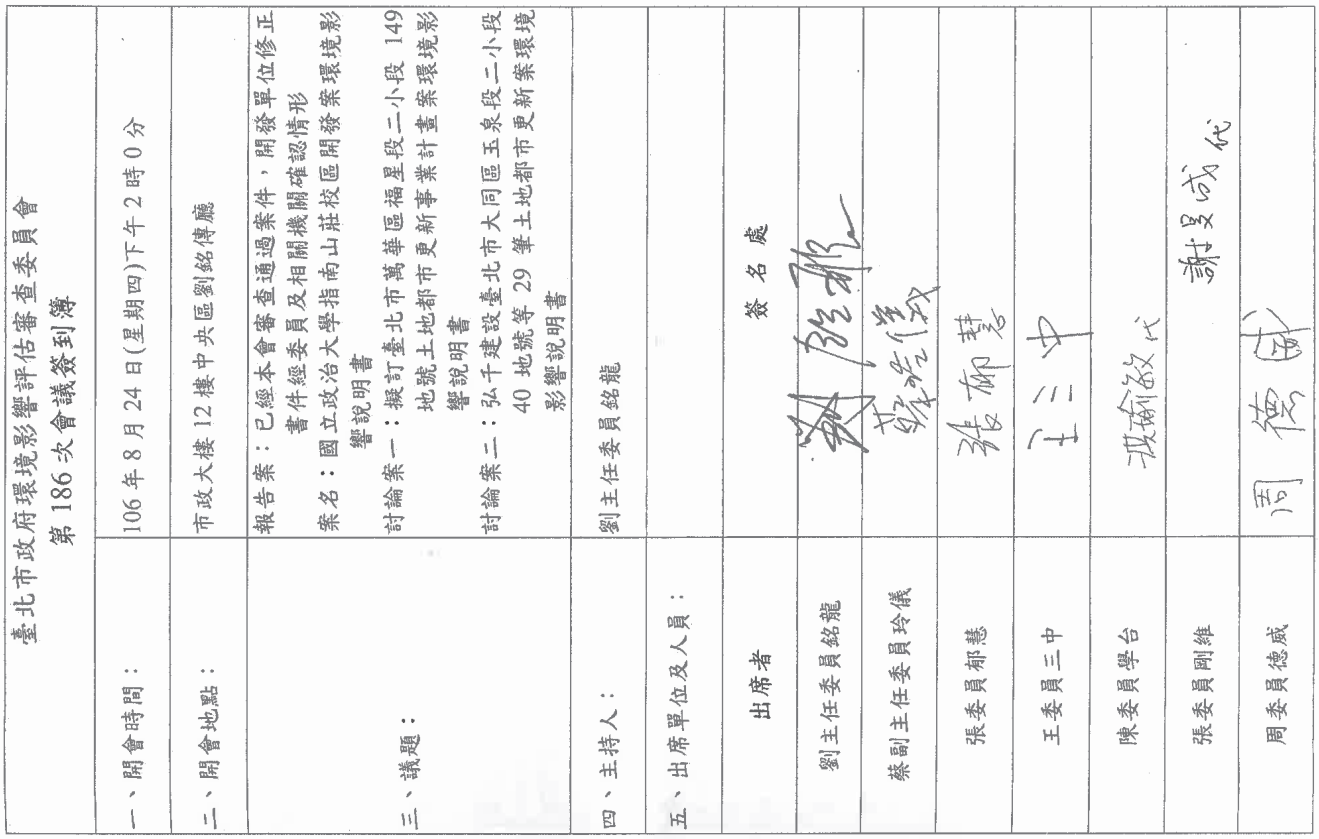 臺北市政府環境影響評估審查委員會
第 186 次會議簽到簿
一、開會時間：
106 年 8 月 24 日(星期四)下午 2 時 0 分
二、開會地點：
市政大樓 12 樓中央區劉銘傳廳
三、議題：
報告案：已經本會審查通過案件，開發單位修正
書件經委員及相關機關確認情形
案名：國立政治大學指南山莊校區開發案環境影
響說明書
討論案一：擬訂臺北市萬華區福星段二小段 149
地號土地都市更新事業計畫案環境影
響說明書
討論案二：弘千建設臺北市大同區玉泉段二小段
40 地號等 29 筆土地都市更新案環境
影響說明書
四、主持人：
劉主任委員銘龍
五、出席單位及人員：
出席者
簽 名 處
劉主任委員銘龍
蔡副主任委員玲儀
張委員郁慧
張郁慧
王委員三中
王三中
陳委員學台
代
張委員剛維
謝旻成代
周委員德威
周德威